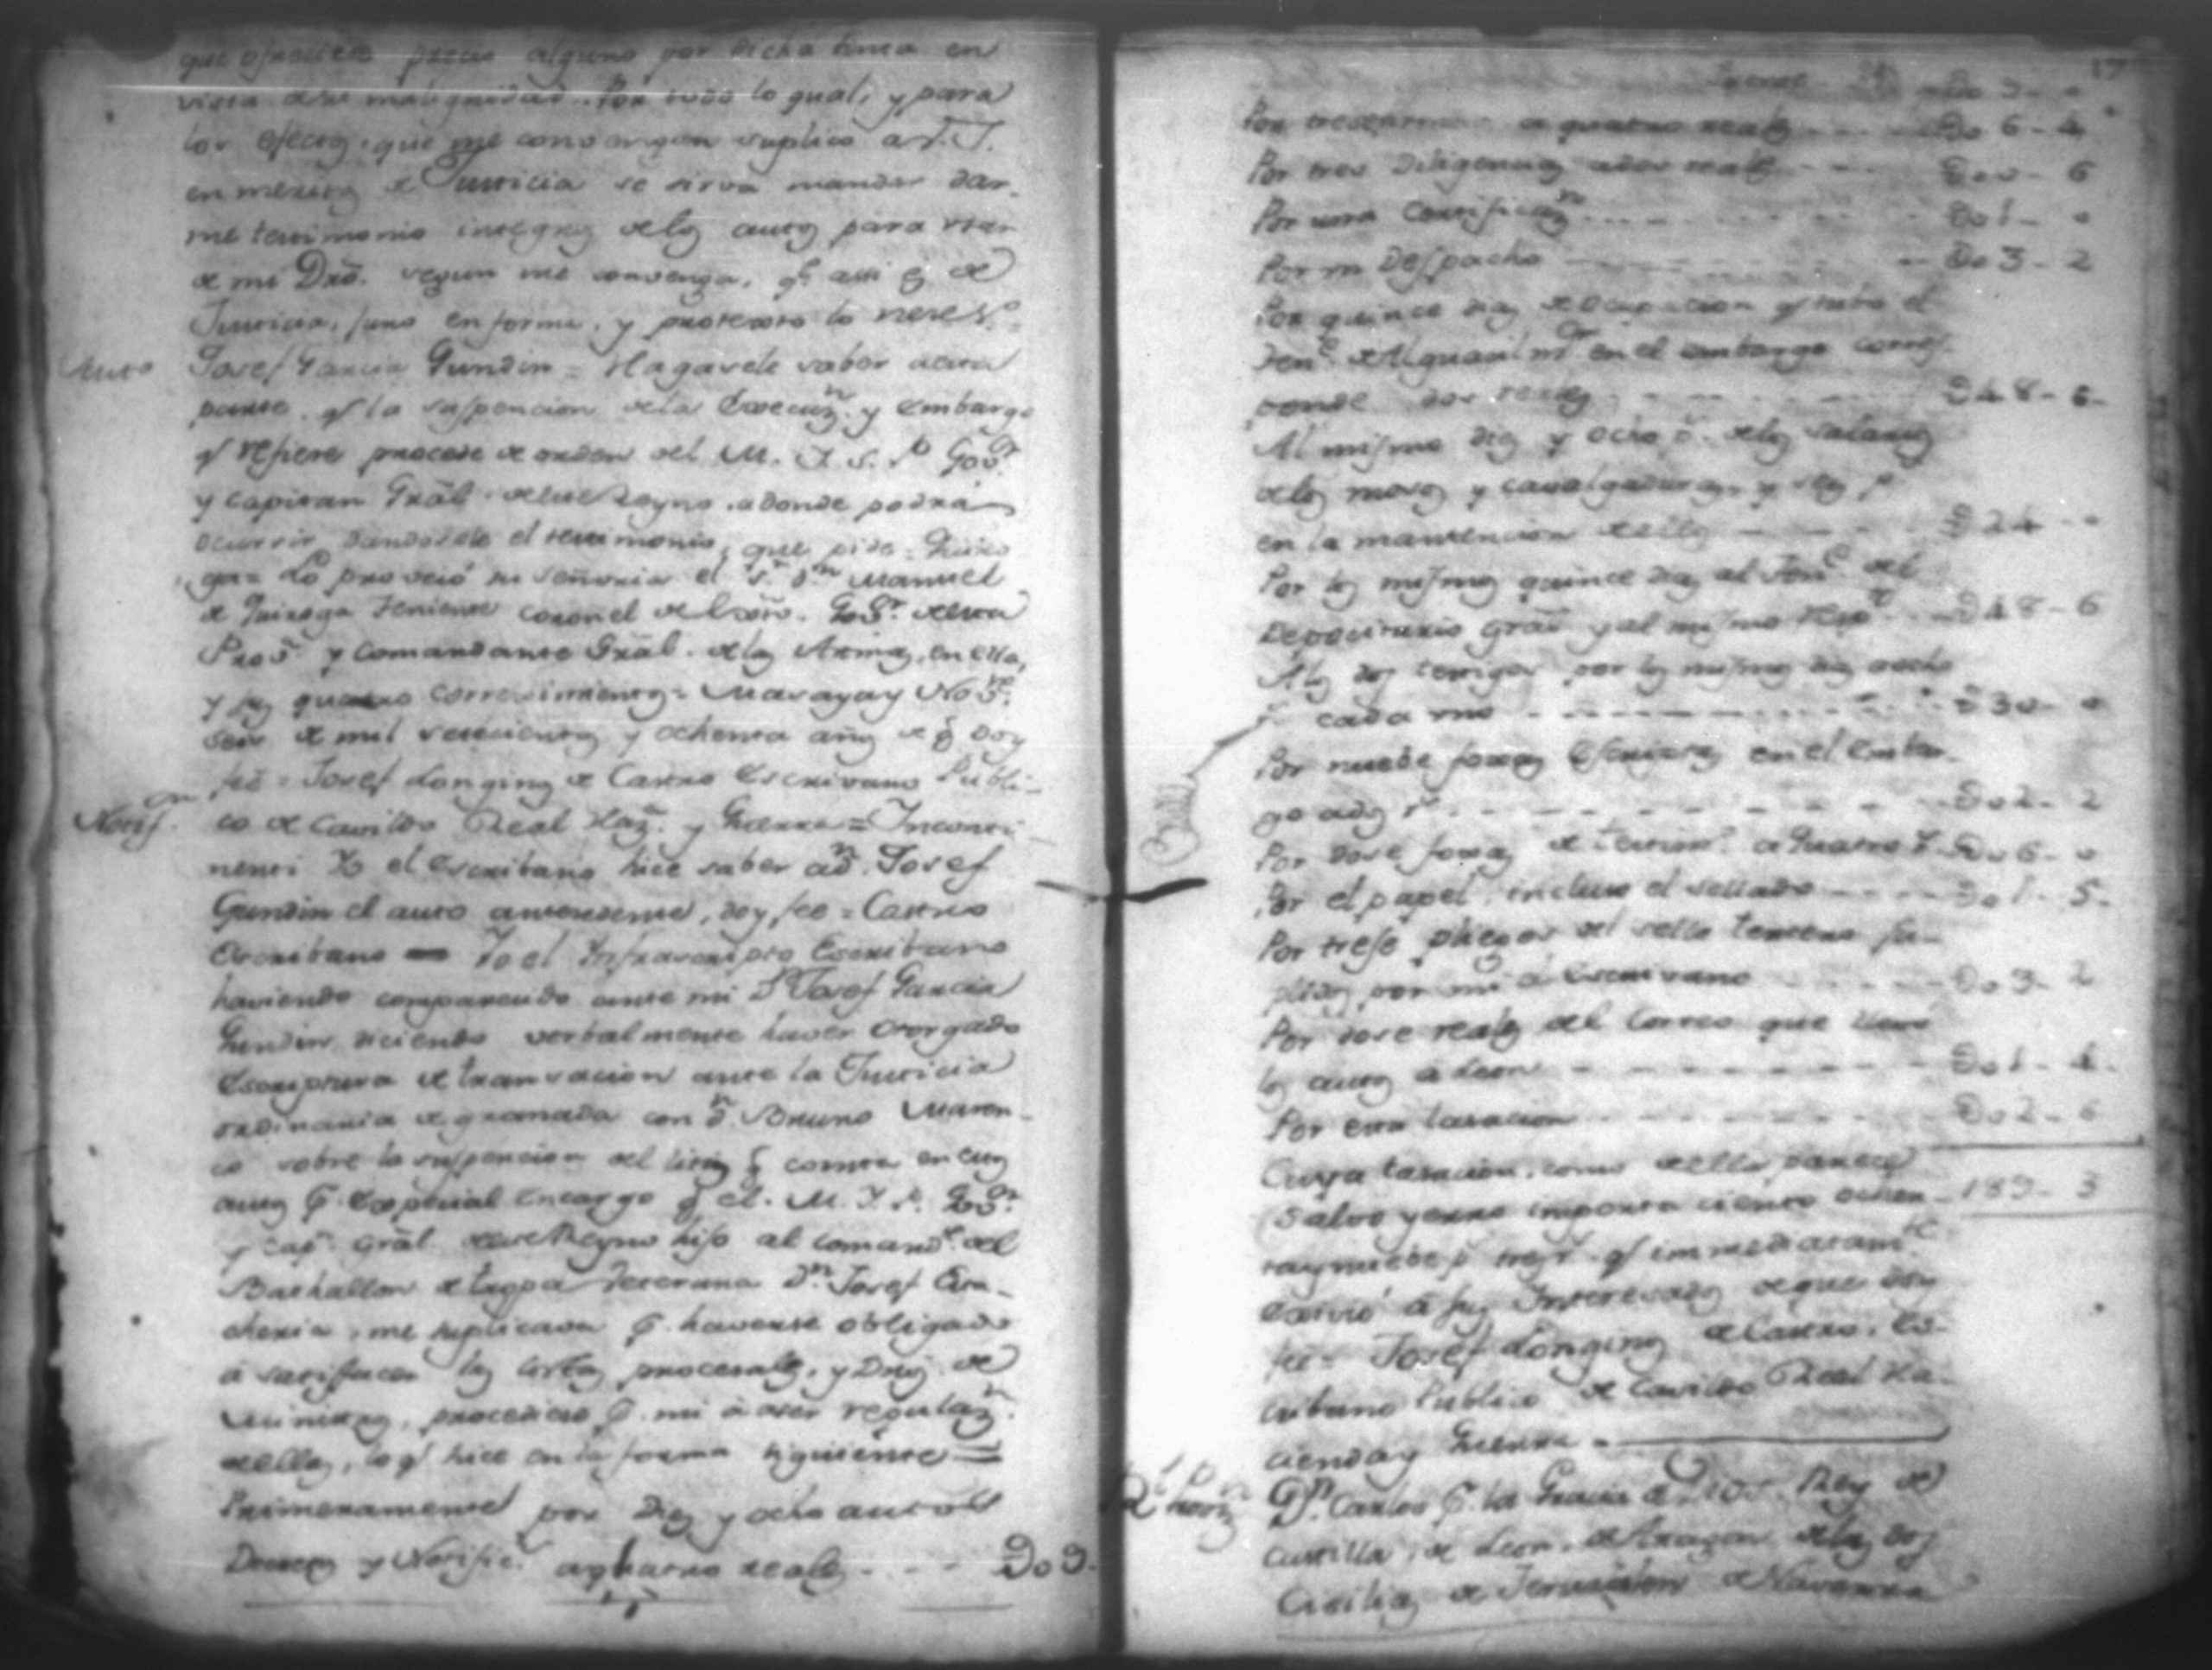 que ofreciere precio alguno por dicha finca en
vista de su malignidad. Por todo lo qual, y para
los efectos que me convengan suplico a V.S.
en meritos de Justicia se sirva mandar dar-
me testimonio integro de los autos para usar
de mi Dro. segun me convenga, qe. assi es de
Justicia, juro en forma, y protexto lo neces.o
Auto
Josef Garcia Gundin = Hagasele saber a esta
parte qe la suspencion de la Execuz.n y embargo
qe refiere procede de orden del M. I. S. P. Gov.or
y Capitan Gral. de este Reyno, adonde podrá
ocurrir, dandosele el testimonio, que pide = Quiro-
ga = Lo proveió su señoria el S.r D.n Manuel
de Quiroga Teniente Coronel Gov.or de esta
Prov.a y Comandante Gral. de las Armas, en ella,
y sus quatro corregimientos = Masaya y Nov.re
seis de mil setecientos y ochenta años de q doy
feé = Josef Longinos de Castro Escrivano Publi-
Notif.on
co de Cavildo Real Haz.a y Guerra = Inconti-
nenti Yo el Escribano hice saber a D.n Josef
Gundin el auto antecedente, doy fee = Castro
Escribano = Yo el Infrascripto Escribano
haviendo comparecido ante mi D.n Josef Garcia
Gundin, diciendo verbalmente haver otorgado
Escriptura de transacion ante la Justicia
ordinaria de granada con D.n Bruno Maren-
co sobre la suspencion del litis q consta en estos
autos p.r especial encargo q el M. I. S. P. Gov.or
y Cap.n Gral. de este Reyno hiso al Comand.te del
Bathallon de tropa Veterana D.n Josef Eca-
cherria, me suplicava p.r haverse obligado
á satisfacer las costas procesales, y Dros de
Ministros, procediese p.r mi á aser regulaz.n
de ellas, lo qe hice en la forma siguiente =
Primeramente por dies y ocho autos
Decretos y Notific.s a quatro reales - - - - D o 9.
17
- D o 9 - o
a quatro reales - - - - D o 6 - 4
Por tres Diligencias a dos reales - - - D o o - 6
Por una Certificaz.n - - - - D o 1 - o
Por un Despacho - - - - D o 3 - 2
Por quince dias de ocupacion qe tubo el
Ten.te de Alguacil m.or en el embargo corres-
ponde dos reales - - - - D 4 8 - 6 -
Al mismo dies y ocho de los salarios
de los mosos y cavalgaduras, y seis p.s
en la mantencion de ellos - - - - D 2 4 - o
Por los mismos quince dias al Ten.te del
Depocitario gral y al mismo - - D 4 8 - 6
A los dos testigos por los mismos dias a ocho
r.s cada uno - - - - D 3 o - o
Por nuebe foxas Escritas en el Embar-
go a dos r.s - - - - D o 2 - 2
Por dose foxas de testim.o a quatro r.s - D o 6 - o
Por el papel, incluso el sellado - - - - D o 1 - 5 -
Por trese pliegos del sello tercero su-
plidos por mi el Escrivano - - D o 3 - 2
Por dose reales del Correo que llevó
los autos á Leon - - - - D o 1 - 4 -
Por esta tasacion - - - - D o 2 - 6
Cuya tasacion, como de ella parece
Salvo yerro importa ciento ochen- 189 - 3
ta y nuebe p.s tres r.s qe immediatam.te
á sus Interesados de que doy
feé = Josef Longinos de Castro, Es-
cribano Publico de Cavildo Real Ha-
cienda y Guerra -
D.n Carlos p.r la Gracia de Dios Rey de
Castilla, de Leon, de Aragon de las dos
Cicilias de Jerusalem de Navarra